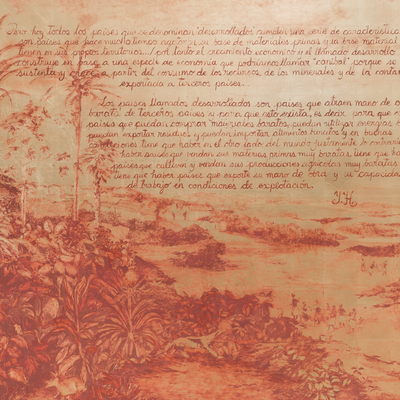 Pero hoy todos los países que se denominan desarrollados cumplen una serie de características
son países que hace mucho tiempo agotaron su base de materias primas y la base material
tienen en sus propios territorios. Por tanto el crecimiento económico en el llamado desarrollo
construye en base a una especie de economía que podríamos llamar "caníbal" porque se
sustenta y crece a partir del consumo de los recursos, de los minerales y de la
exportada a terceros países.
Los países llamados desarrollados son países que atraen mano de o
barata, de terceros países y para que esto exista, es decir para que e
países que puedan comprar materiales baratos, puedan utilizar energías
puedan exportar residuos y puedan importar alimentos baratos y en buenas
condiciones tiene que haber en el otro lado del mundo justamente lo contrario
haber países que vendan sus materias primas muy baratas, tiene que ha
países que cultiven y vendan sus producciones agrícolas muy baratas
tiene que haber países que exporte su mano de obra y su capacidad
de trabajo en condiciones de explotación.
Y.H